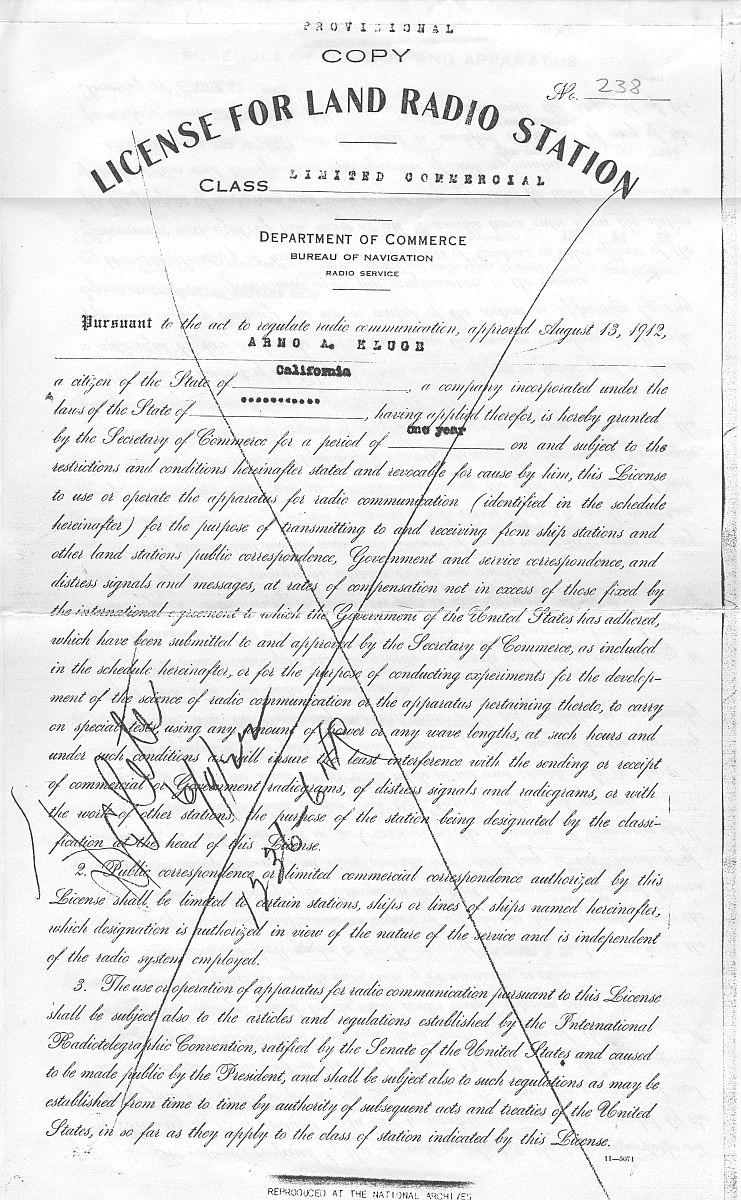 PROVISIONAL
COPY
No. 238
LICENSE FOR LAND RADIO STATION
CLASS LIMITED COMMERCIAL
DEPARTMENT OF COMMERCE
BUREAU OF NAVIGATION
RADIO SERVICE
Pursuant to the act to regulate radio communication, approved August 13, 1912,
ARNO A. KLUGE
a citizen of the State of California, a company incorporated under the
laws of the State of ..........., having applied therefor, is hereby granted
by the Secretary of Commerce for a period of One year on and subject to the
restrictions and conditions hereinafter stated and revocable for cause by him, this License
to use or operate the apparatus for radio communication (identified in the schedule
hereinafter) for the purpose of transmitting to and receiving from ship stations and
other land stations public correspondence, Government and service correspondence, and
distress signals and messages, at rates of compensation not in excess of those fixed by
the international agreement to which the Government of the United States has adhered,
which have been submitted to and approved by the Secretary of Commerce, as included
in the schedule hereinafter, or for the purpose of conducting experiments for the develop-
ment of the science of radio communication or the apparatus pertaining thereto, to carry
on special tests, using any amount of power or any wave lengths, at such hours and
under such conditions as will insure the least interference with the sending or receipt
of commercial or Government radiograms, of distress signals and radiograms, or with
the work of other stations, the purpose of the station being designated by the classi-
fication at the head of this License.
2. Public correspondence or limited commercial correspondence authorized by this
License shall be limited to certain stations, ships or lines of ships named hereinafter,
which designation is authorized in view of the nature of the service and is independent
of the radio system employed.
3. The use or operation of apparatus for radio communication pursuant to this License
shall be subject also to the articles and regulations established by the International
Radiotelegraphic Convention, ratified by the Senate of the United States and caused
to be made public by the President, and shall be subject also to such regulations as may be
established from time to time by authority of subsequent acts and treaties of the United
States, in so far as they apply to the class of station indicated by this License.
11—5071
REPRODUCED AT THE NATIONAL ARCHIVES